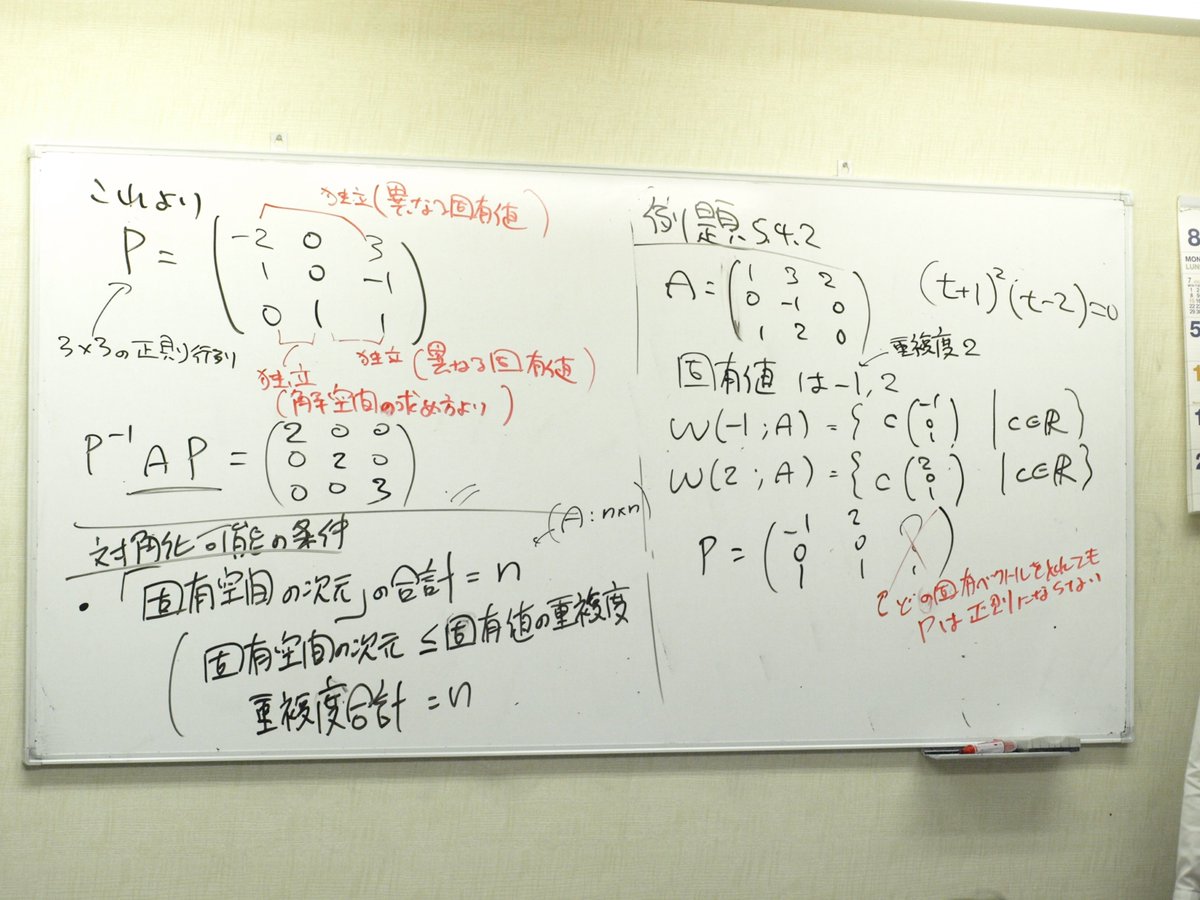 これより
独立(異なる固有値)
P = (-2 0 3
1 0 -1
0 1 1)
3×3の正則行列
独立
(解空間の求め方より)
独立(異なる固有値)
P⁻¹AP = (2 0 0
0 2 0
0 0 3)
対角化可能の条件
(A:n×n)
・「固有空間の次元」の合計 = n
(固有空間の次元 ≤ 固有値の重複度
重複度合計 = n
例題5.4.2
A = (1 3 2
0 -1 0
1 2 0)
(t+1)²(t-2)=0
重複度2
固有値は-1, 2
W(-1;A) = {c(-1 0 1) | c∈R}
W(2;A) = {c(2 0 1) | c∈R}
P = (-1 2 ?
0 0 :
1 1 :)
どの固有ベクトルを入れても
Pは正則にならない
8
MON
LUN